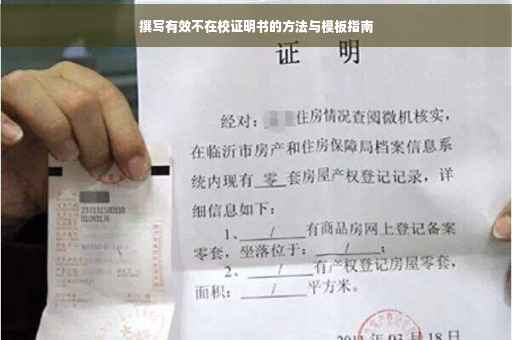 撰写有效不在校证明书的方法与模板指南
证 明
经对：住房情况查阅微机核实，
在临沂市房产和住房保障局档案信息系
统内现有 零 套房屋产权登记记录，详
细信息如下：
1、 / 有商品房网上登记备案
零套，坐落位于： / ；
2、 / 有产权登记房屋零套，
面积： / 平方米。
月 18 日